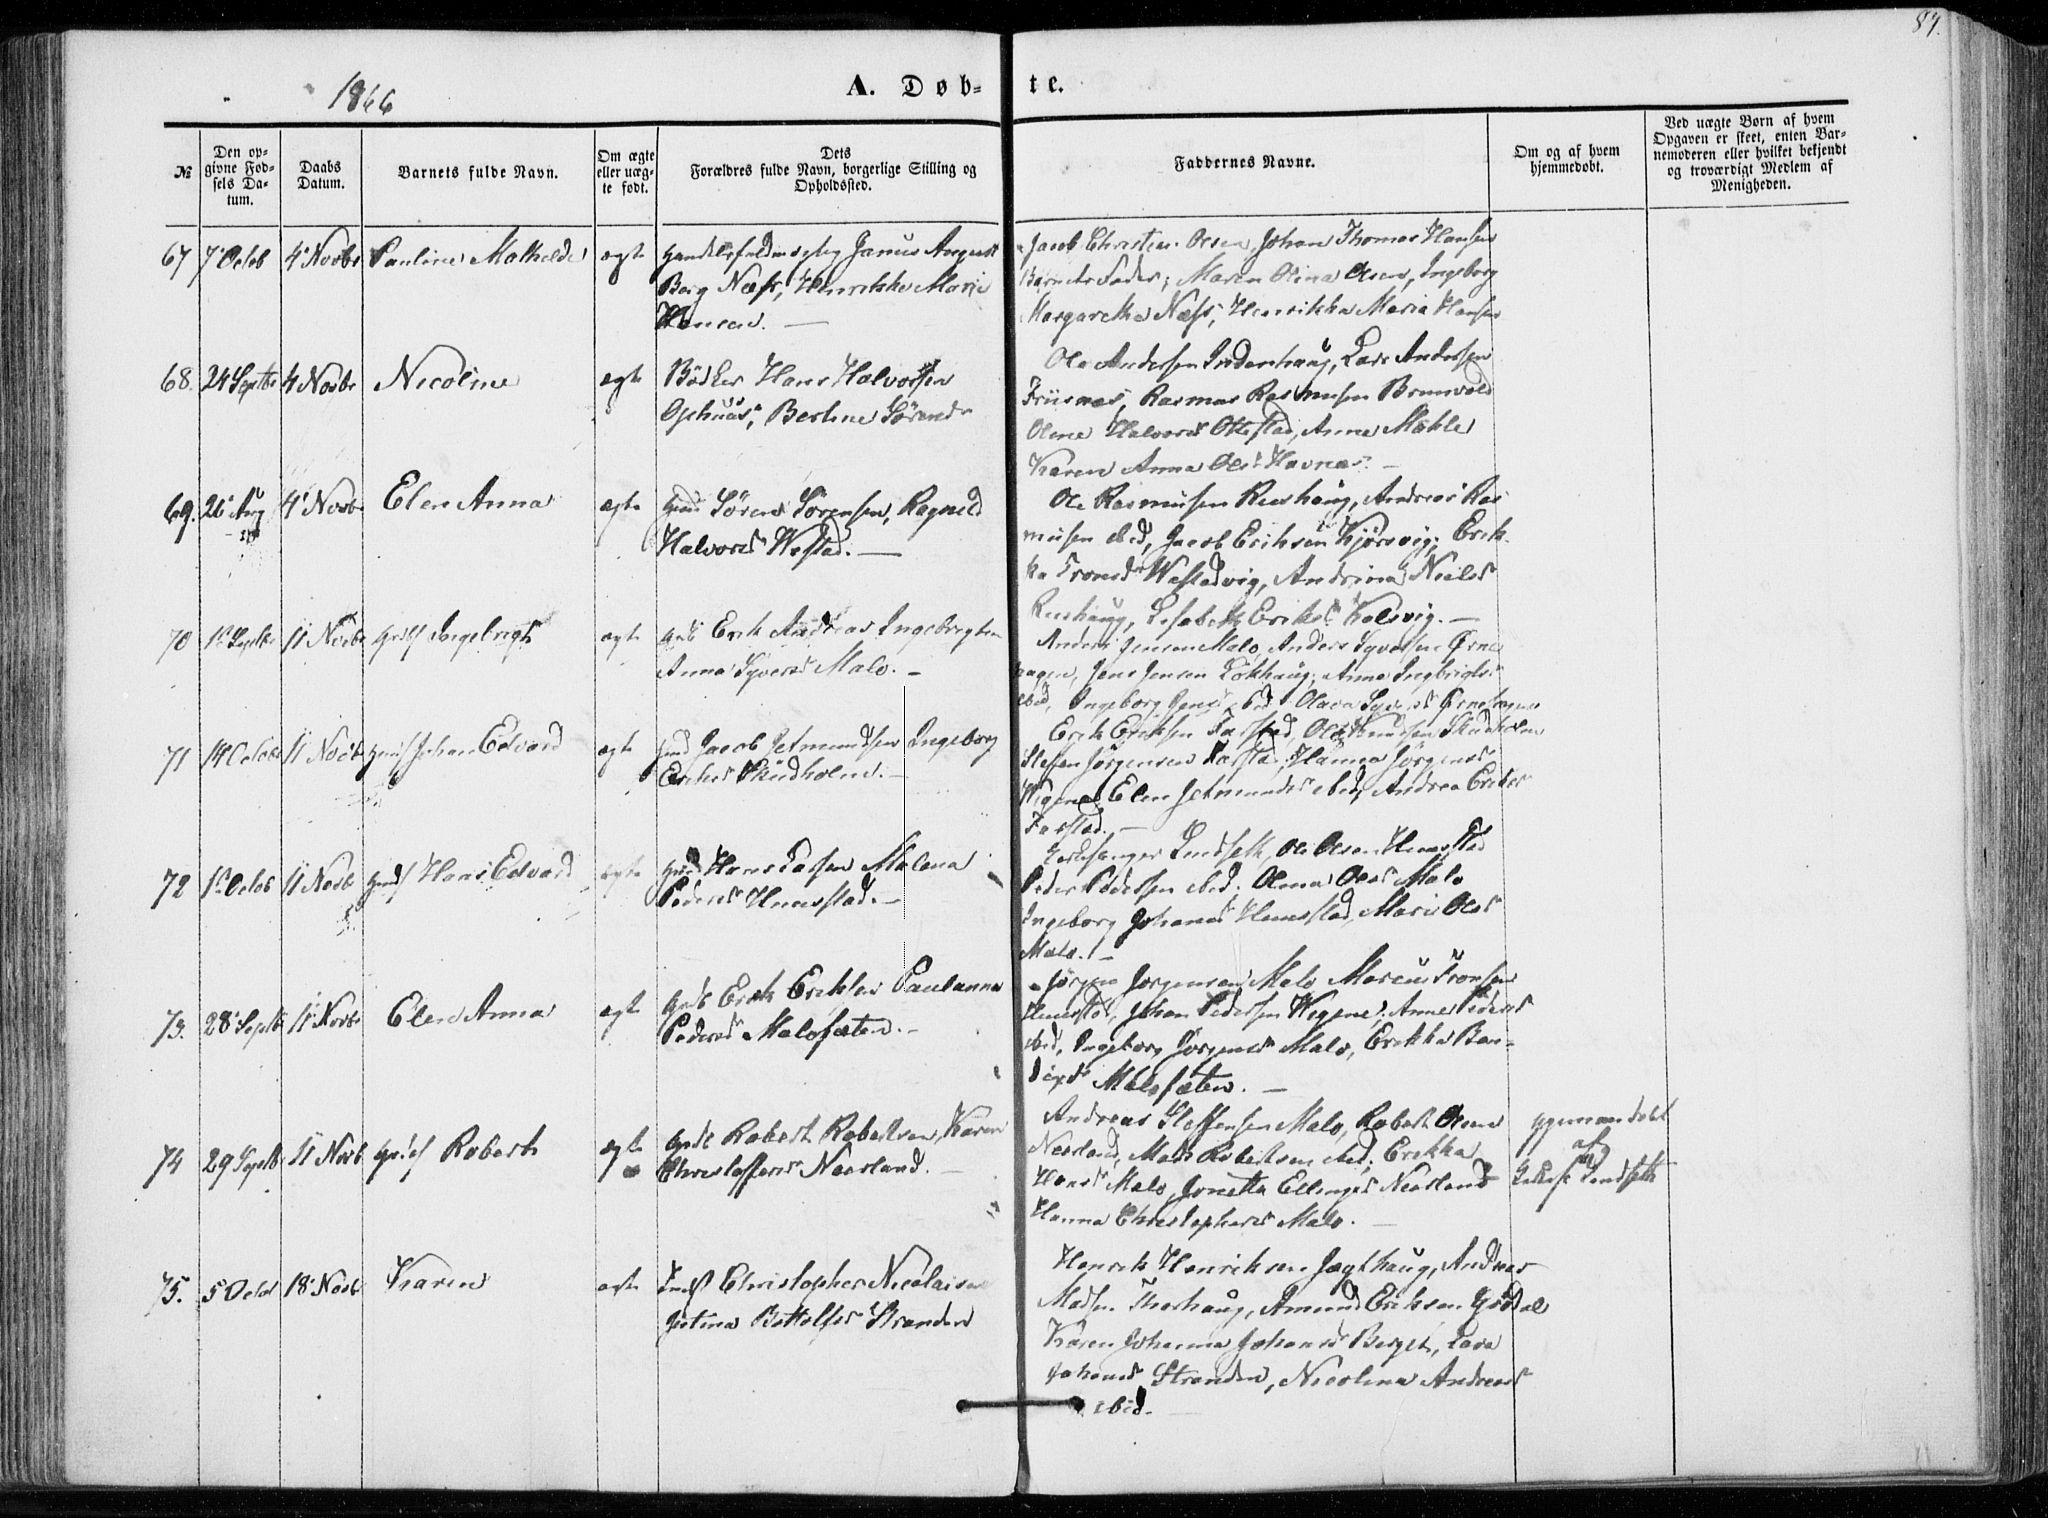 87.
1866
A. Døb-
te.
№
Den op-
givne Fød-
sels Da-
tum.
Daabs
Datum.
Barnets fulde Navn.
Om ægte
eller uæg-
te født.
Dets
Forældres fulde Navn, borgerlige Stilling og
Opholdssted.
Faddernes Navne.
Om og af hvem
hjemmedøbt.
Ved uægte Børn af hvem
Opgaven er skeet, enten Bar-
nemoderen eller hvilket bekjendt
og troværdigt Medlem af
Menigheden.
67 7 Octob 4 Novbr Pauline Mathilde ægte Janus August
Berg Næss, Henrikke Marie
Hansen.
Jacob Christen Olsen, Johan Thomas Hansen
Barnets Fader, Maren Olina Olsen, Ingeborg
Margaretha Næss, Henrikka Maria Hansen
68. 24 Septbr 4 Novbr Nicoline ægte Bødker Hans Halvorsen
Ophuus, Berthe Sørensd
Ole Andersen Indenhaug, Lars Andersen
Friisnes, Rasmus Rasmusen Brunvold
Oline Halvorsd Ottestad, Anna Mæhle
Karen Anna Olsd Havnes.
69. 26 Aug 4 Novbr Elen Anna ægte Gmd Søren Sørensen, Ragnild
Halvorsd Westad.
Ole Rasmusen Rushaug, Andreas Ras
musen ibid, Jacob Eriksen Kjørsvig, Erik
ka Tronsd Westadvig, Andrina Nielsd
Rushaug, Lisabeth Eriksd Kalsvig.
70 1 Septbr 11 Novbr Ingebrigt ægte Erik Andreas Ingebrigtsen
Anna Syversd Malo.
Anders Jensen Malo, Anders Syversen Ørne
haugen, Jens Jensen Løkhaug, Anna Ingbrigtsd
ibid, Ingeborg Jensd ibid Olava Syversd Ørnehaugen
71 14 Octobr 11 Novbr Johan Edvard ægte Gmd Jacob Jetmundsen Ingeborg
Eriksd Skudholm.
Erik Eriksen Farstad, Ole Knudsen Skudholm
Steffen Jørgensen Farstad, Hanna Jørgensd
Wigene Elen Jetmundsd ibid, Andrea Eriksd
Farstad.
72 1 Octob 11 Novb Hans Edvard ægte Hans Larsen Malena
Pedersd Hunestad.
Kirkesanger Lindseth, Ole Olsen Hunestad
Peder Pedersen ibid. Olina Olsd Malo
Ingeborg Johansd Hunestad, Maria Olsd
Malo.
73. 28 Septb 11 Novbr Elen Anna ægt Erik Eriksen Paulanna
Pedersd Malosæten.
Jørgen Jørgensen Malo Marcus Tronsen
Hunestad, Johan Pedersen Wigene, Anne Pedersd
ibid, Ingeborg Jørgensd Malo, Erikka Ben-
dixd Malosæten.
74 29 Septbr 11 Novb Robert ægte Robert Robertsen, Karen
Christoffersd Neerland.
Andreas Steffensen Malo, Robert Olsen
Neerland, Mads Robertsen ibid, Erikka
Hansd Malo, Jonetta Ellingsd Neerland
Hanna Christophersd Malo.
af
Lindseth
75. 5 Octob 18 Novb Karen ægte Christopher Nicolaisen
Justina Bottolfsd Stranden
Henrik Henriksen Jægthaug, Andreas
Madsen Thorhaug, Amund Eriksen
Karen Johanna Johansd Berget, Lava
Johansd Stranden, Nicolina Andreasd
ibid.